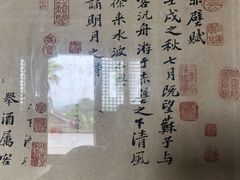 赤壁賦
壬戌之秋七月既望蘇子與
客汎舟游于赤壁之下清風
徐來水波不興
舉酒屬客
誦明月之詩